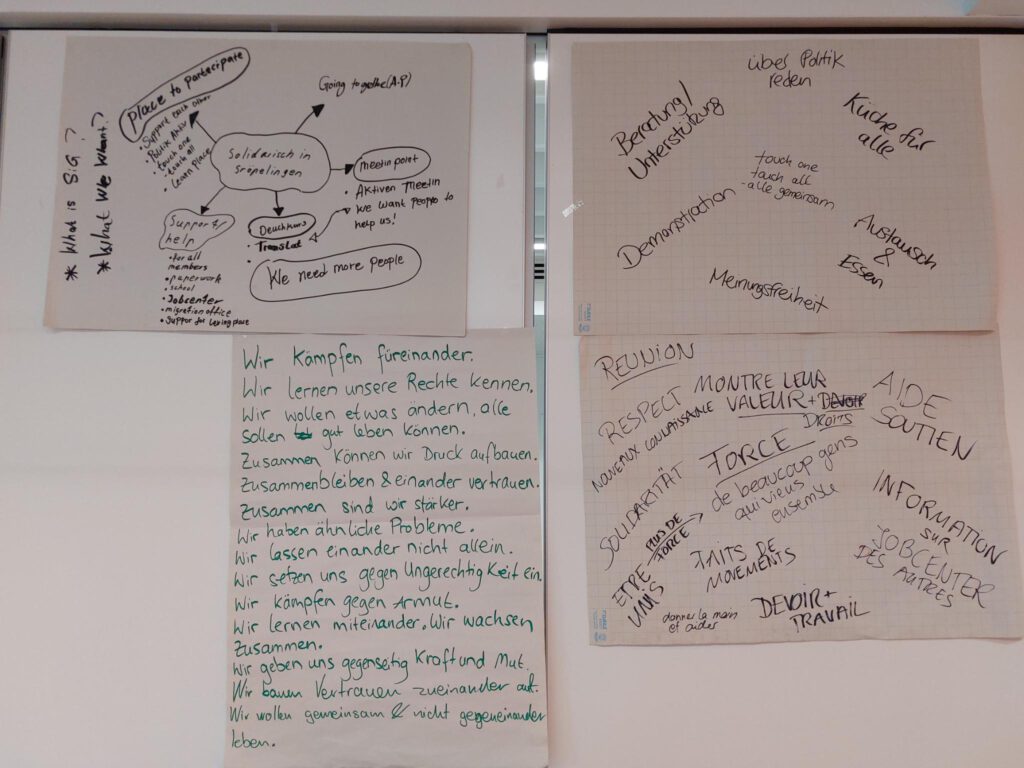 * What is SiG?
* What We Whant?
Place to partecipate
• Support each other
• Politik Aktiv
• touch one
touch all
• learn place
Going to gethe (A.P)
Solidarisch in
Sröpelingen
meetin point
• Aktiven Meetin
• We want People to
help us!
Deuchkurs
• Translat
Support/
help
• for all
members
• paperwork
• school
• Jobcenter
• migration office
• Suppor for Leving place
We need more people
über Politik
reden
Beratung/
Unterstützung
Küche für
alle
touch one
touch all
- alle gemeinsam
Demonstration
Austausch
&
Essen
Meinungsfreiheit
Wir Kämpfen füreinander.
Wir lernen unsere Rechte kennen.
Wir wollen etwas ändern, alle
sollen gut leben können.
Zusammen können wir Druck aufbauen.
Zusammenbleiben & einander vertrauen.
Zusammen sind wir stärker.
Wir haben ähnliche Probleme.
Wir lassen einander nicht allein.
Wir setzen uns gegen Ungerechtigkeit ein.
Wir kämpfen gegen Armut.
Wir lernen miteinander. Wir wachsen
Zusammen.
Wir geben uns gegenseitig Kraft und Mut.
Wir bauen Vertrauen zueinander auf.
Wir wollen gemeinsam & nicht gegeneinander
leben.
REUNION
RESPECT
MONTRE LEUR
VALEUR + DEVOIR
DROITS
NOUVEAUX
AIDE
SOUTIEN
FORCE
de beaucoup gens
qui viens
ensemble
SOLIDARITÄT
ETRE
UNIS
PLUS DE
FORCE
FAITS DE
MOVEMENTS
INFORMATION
SUR
JOBCENTER
DES AUTRES
donner la main
et aider
DEVOIR +
TRAVAIL